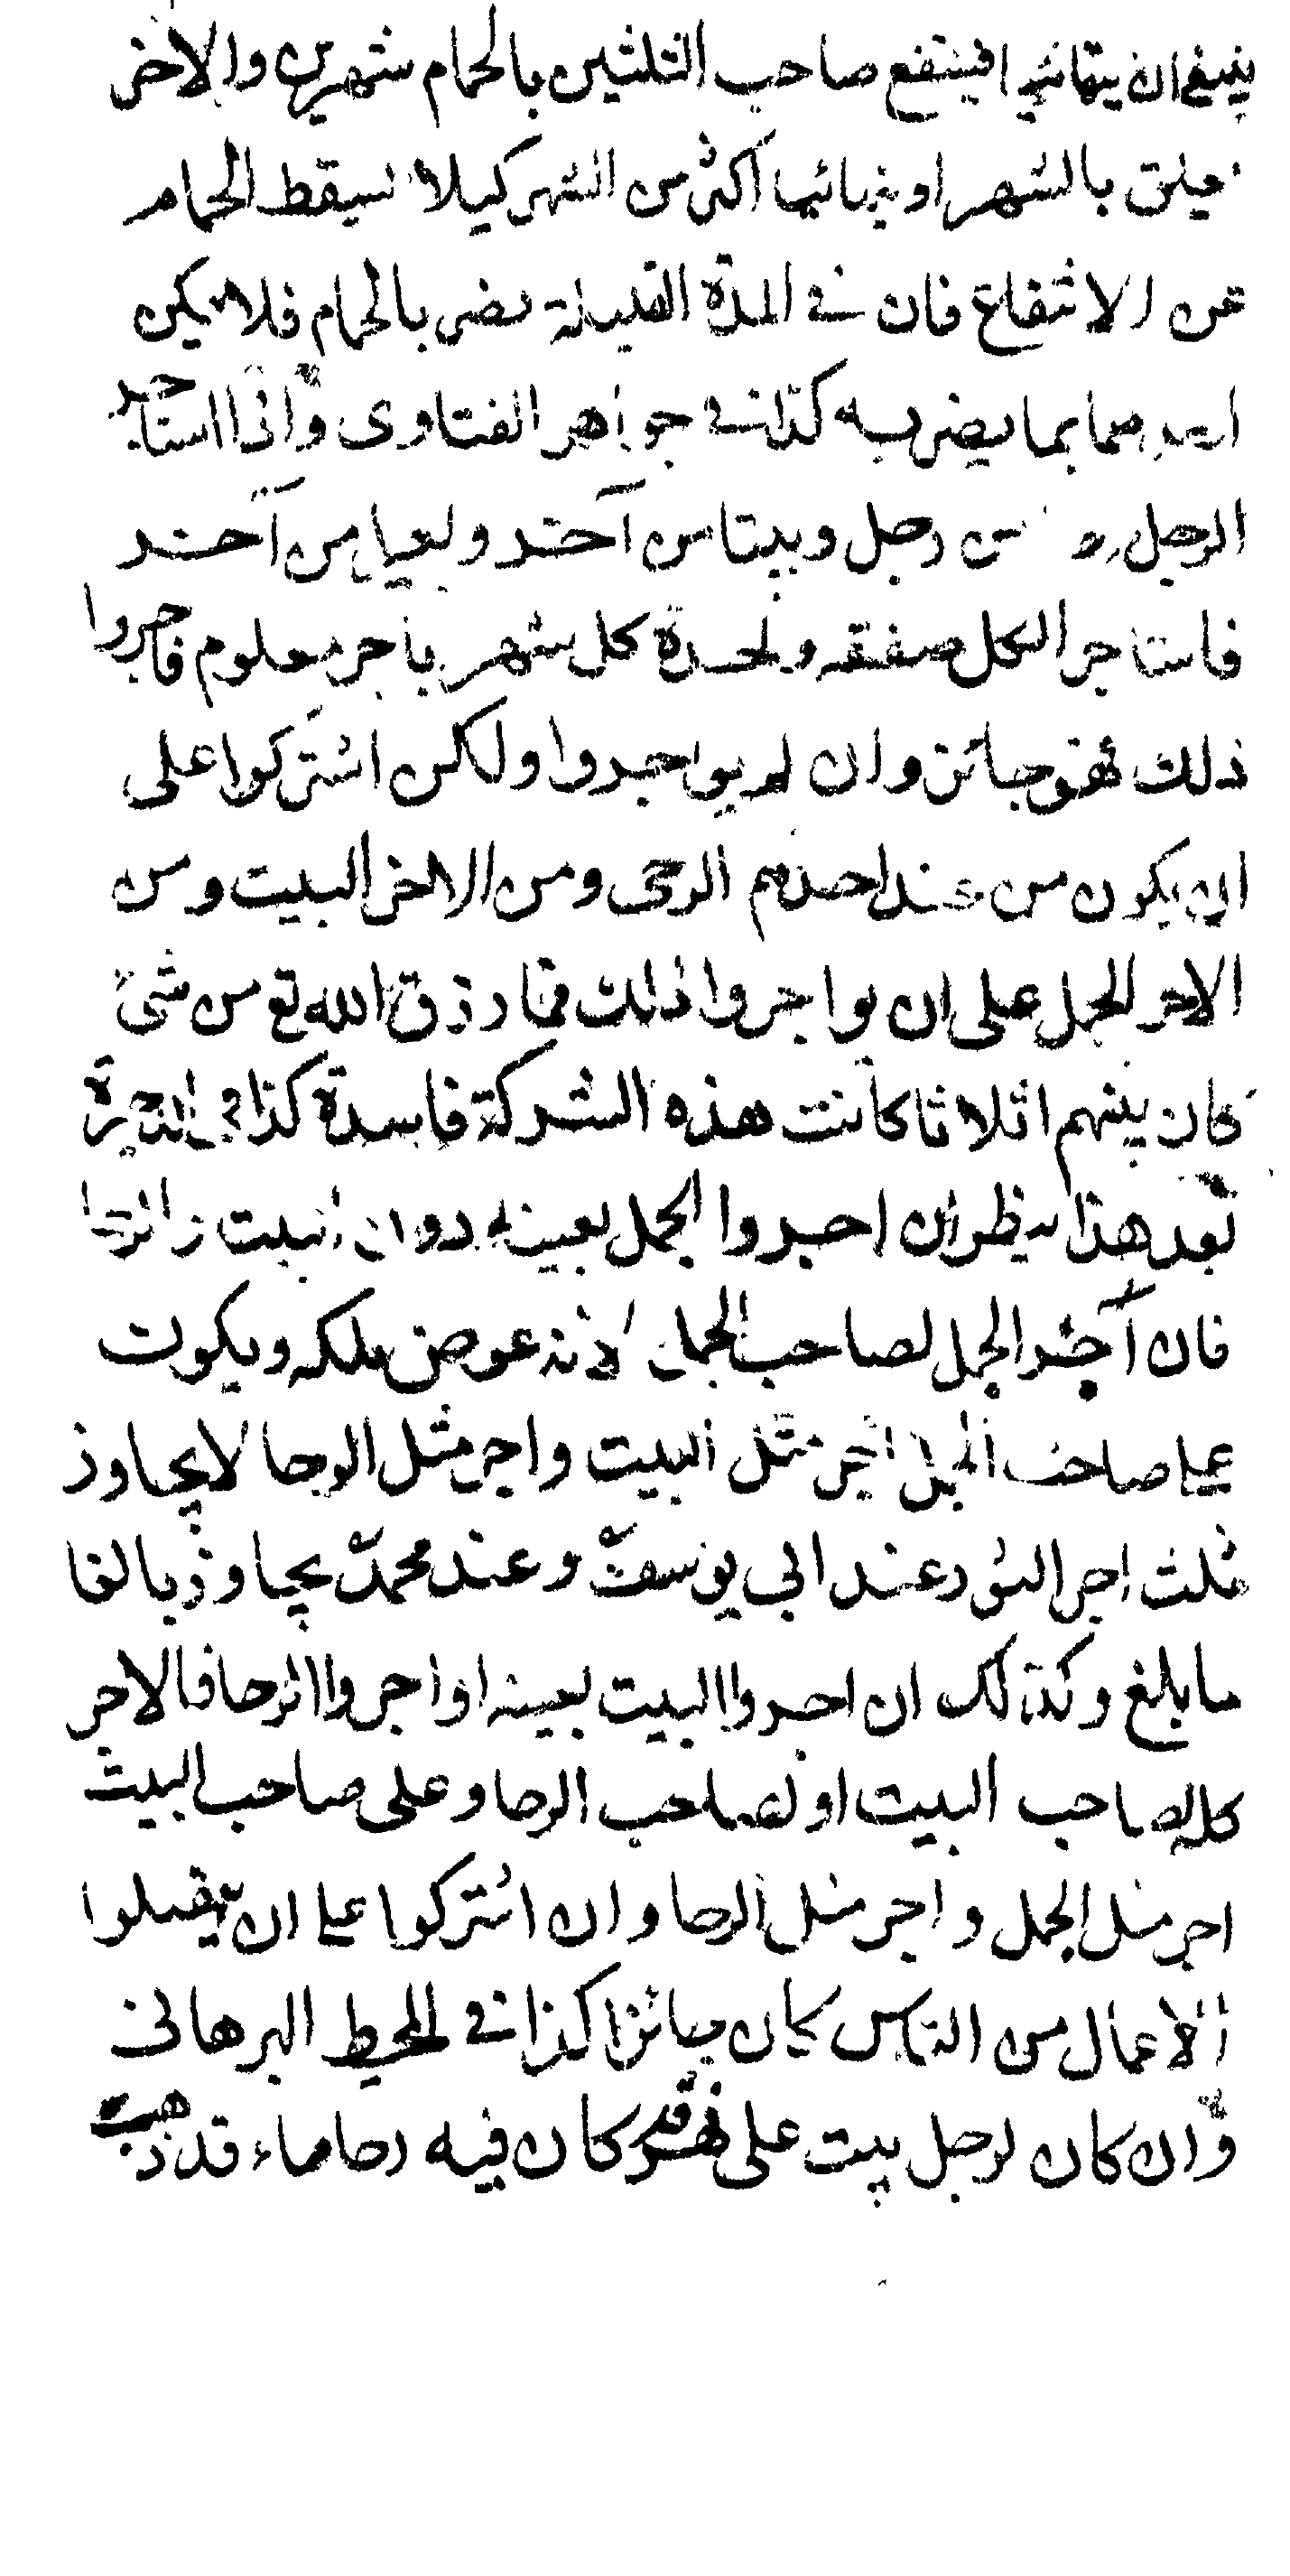 ينبغي ان يتهائيا فينتفع صاحب الثلثين بالحمام شهرين والاخر
يغلق بالشهر او يتهائيا اكثر من الشهر كيلا يسقط الحمام
عن الانتفاع فان في المدة القليلة يضر بالحمام فلا يمكن
بما يضر به كذا في جواهر الفتاوى واذا استاجر
الرجل من رجل وبيتا من آخر وبعيرا من آخر
فاستاجر الكل صفقه واحدة كل شهر باجر معلوم فاجروا
ذلك فهو جائز وان لم يواجروا ولكن اشتركوا على
ان يكون من عند احدهم الرحى ومن الاخر البيت ومن
الاخر الجمل على ان يواجروا ذلك فما رزق الله تع من شئ
كان بينهم اثلاثا كانت هذه الشركة فاسدة كذا في الذخيرة
بعد هذا ينظر ان اجروا الجمل بعينه دون البيت والرحا
فان آجر الجمل لصاحب الجمل لانه عوض ملكه ويكون
على صاحب الجمل اجر مثل البيت واجر مثل الرحا لا يجاوز
ثلث اجر عند ابي يوسف وعند محمد يجاوز بالغا
ما بلغ وكذلك ان اجروا البيت بعينه او اجروا الرحا فالاجر
كله لصاحب البيت او لصاحب الرحا وعلى صاحب البيت
اجر مثل الجمل واجر مثل الرحا وان اشتركوا على ان يتقبلوا
الاعمال من الناس كان جائزا كذا في المحيط البرهانى
وان كان لرجل بيت على نهر قد كان فيه رحا ماء قد ذهب